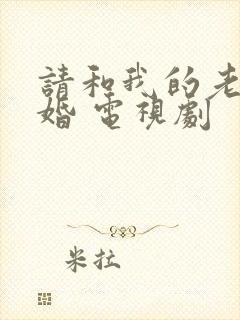 請和我的老
婚 電視劇
米拉